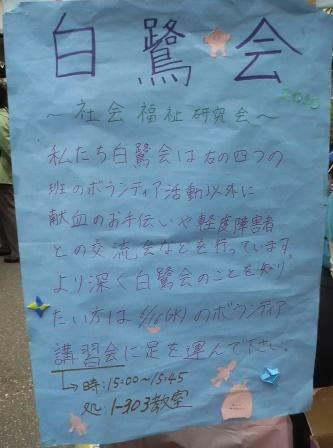 白鷺会
～社会福祉研究会～
2010
私たち白鷺会は右の四つの
班のボランティア活動以外に
献血のお手伝いや軽度障害者
との交流会などを行っています。
より深く白鷺会のことを知り
たい方は (水)のボランティア
講習会に足を運んで下さい。
→時:15:00～15:45
処:1-303教室